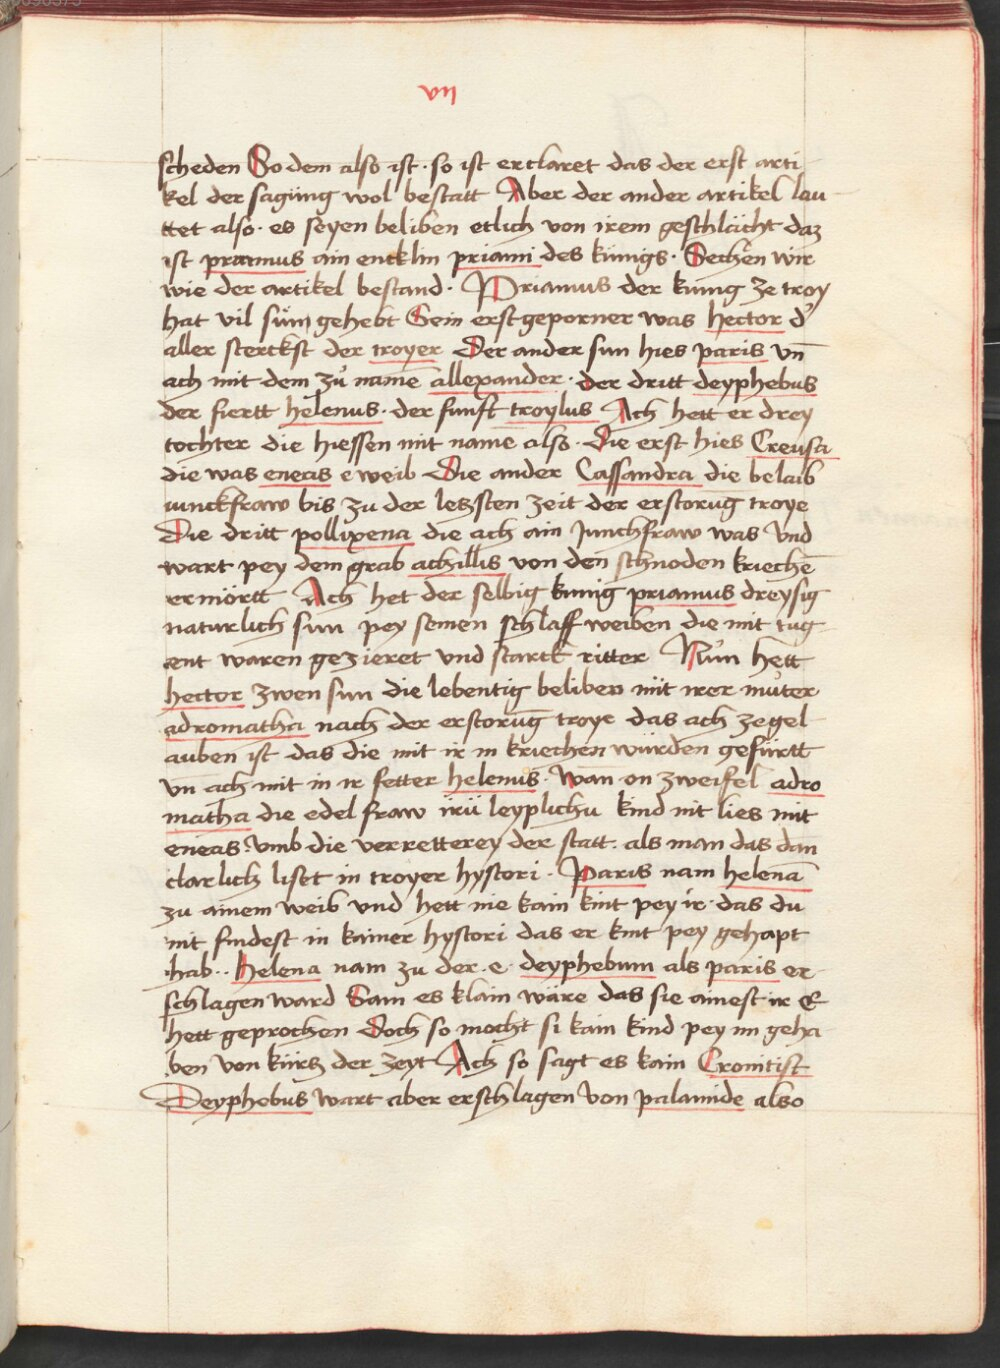 vii
scheden So dem also ist · so ist erclaret das der erst arti
kel der sagūng wol bestatt Aber der ander artikel lau
ttet also · es seyen beliben etlich von irem geschlächt daz
ist priamus ain encklin priami des künigs · Sechen wir
wie der artikel bestand · Priamus der kúnig ze troy
hat vil sún gehebt Sein erstgeporner was hector d'
aller sterckst der troyer Der ander sun hies paris vn̄
ach mit dem zů namē allexander · der dritt deyphebus
der fiertt helenus · der funft troylus Ach hett er drey
tochter die hiessen mit namē also · Die erst hies Creusa
die was eneas e weib Die ander Cassandra die belaib
iunckfraw bis zu der letzsten zeit der erstorūg troye
Die dritt pollixena die ach ain Junchfraw was Vnd
wart pey dem grab achillis von den schnoden kriechē
ermörtt Ach het der selbig kunig priamus dreysig
naturlich sun pey seinen schlaff weiben die mit tug
ent waren gezieret vnd starck ritter Nún hett
hector zwen sun die lebentig beliben mit irer můter
adromatha nach der erstorūg troye das ach zegel
auben ist das die mit ir in kriechen würden gefürtt
vn̄ ach mit in ir fetter helenus · Wan on zweifel adro
matha die edel fraw irü leyplichu kind nit lies mit
eneas · Vmb die verretterey der statt · als man das dan
clarlich liset in troyer hystori · Paris nam helenā
zu ainem weib vnd hett nie kain kint pey ir · das du
nit findest in kainer hystori das er kint pey gehapt
hab · · Helena nam zu der · e · deyphebum als paris er
schlagen ward Sam es klain wäre das sie ainest ir E
hett geprochen Doch so mocht si kain kind pey im geha
ben von kürtz der zeyt Ach so sagt es kain Cronitist
Deyphebus wart aber erschlagen von palamide also